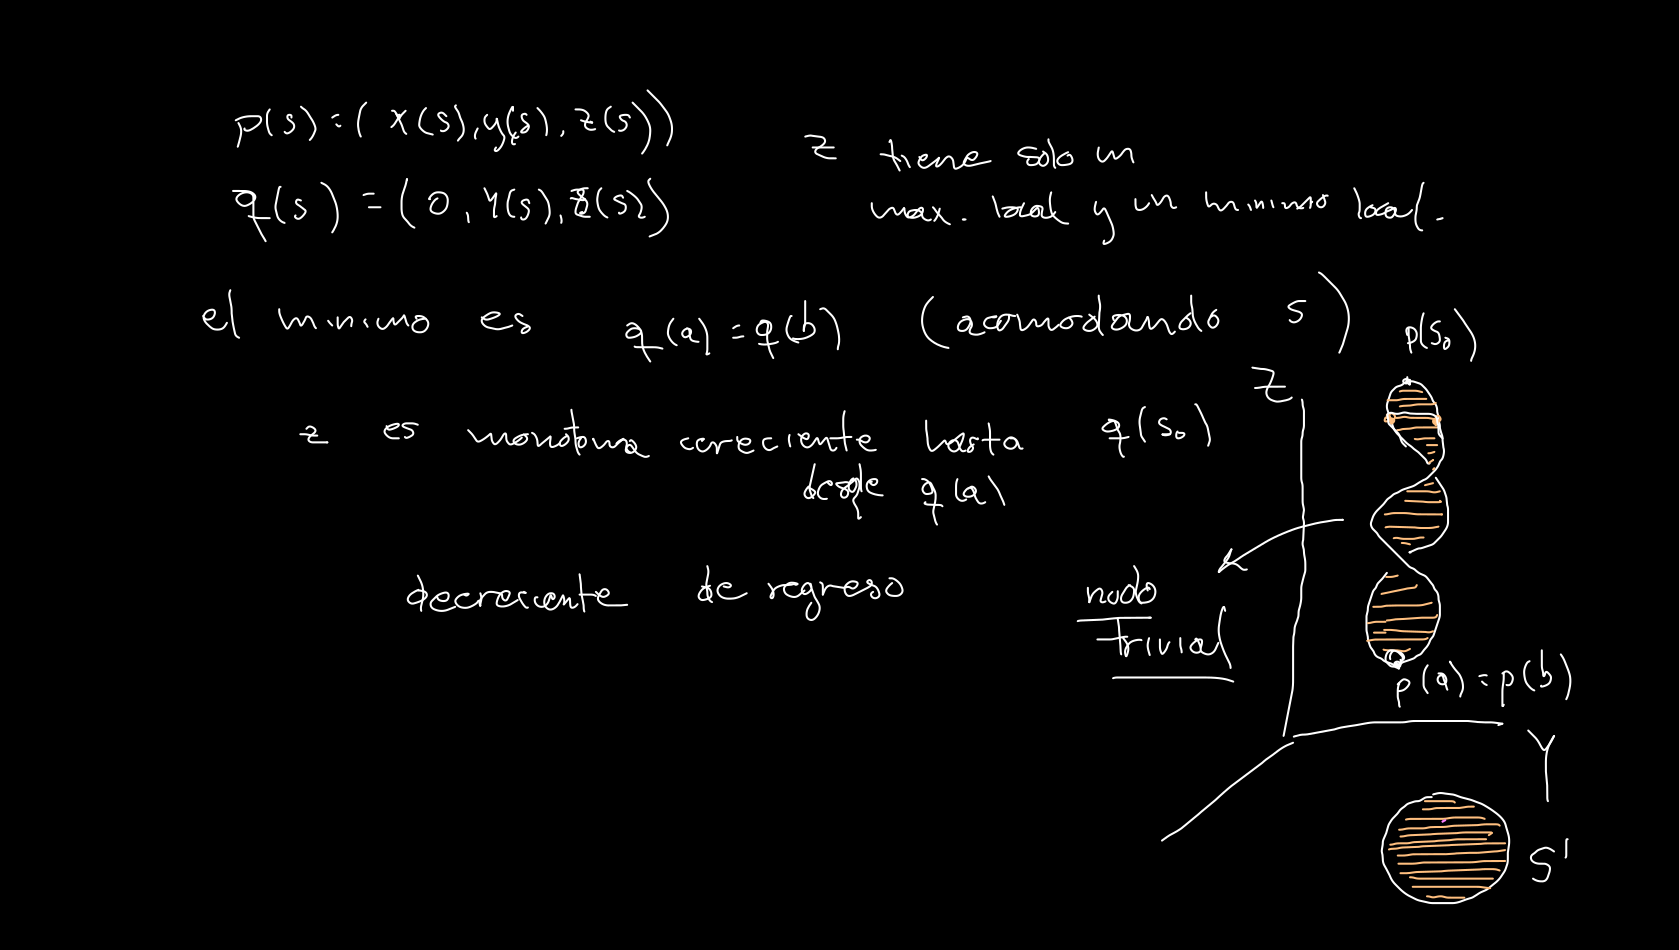 p(s) = (x(s), y(s), z(s))
q(s) = (0, y(s), z(s))
z tiene solo un
max. local y un minimo local.
el minimo es q(a) = q(b) (acomodando s)
p(s₀)
z
z es monotona correciente hasta q(s₀)
desde q(a)
decreciente de regreso
nudo
trivial
p(a) = p(b)
Y
S¹